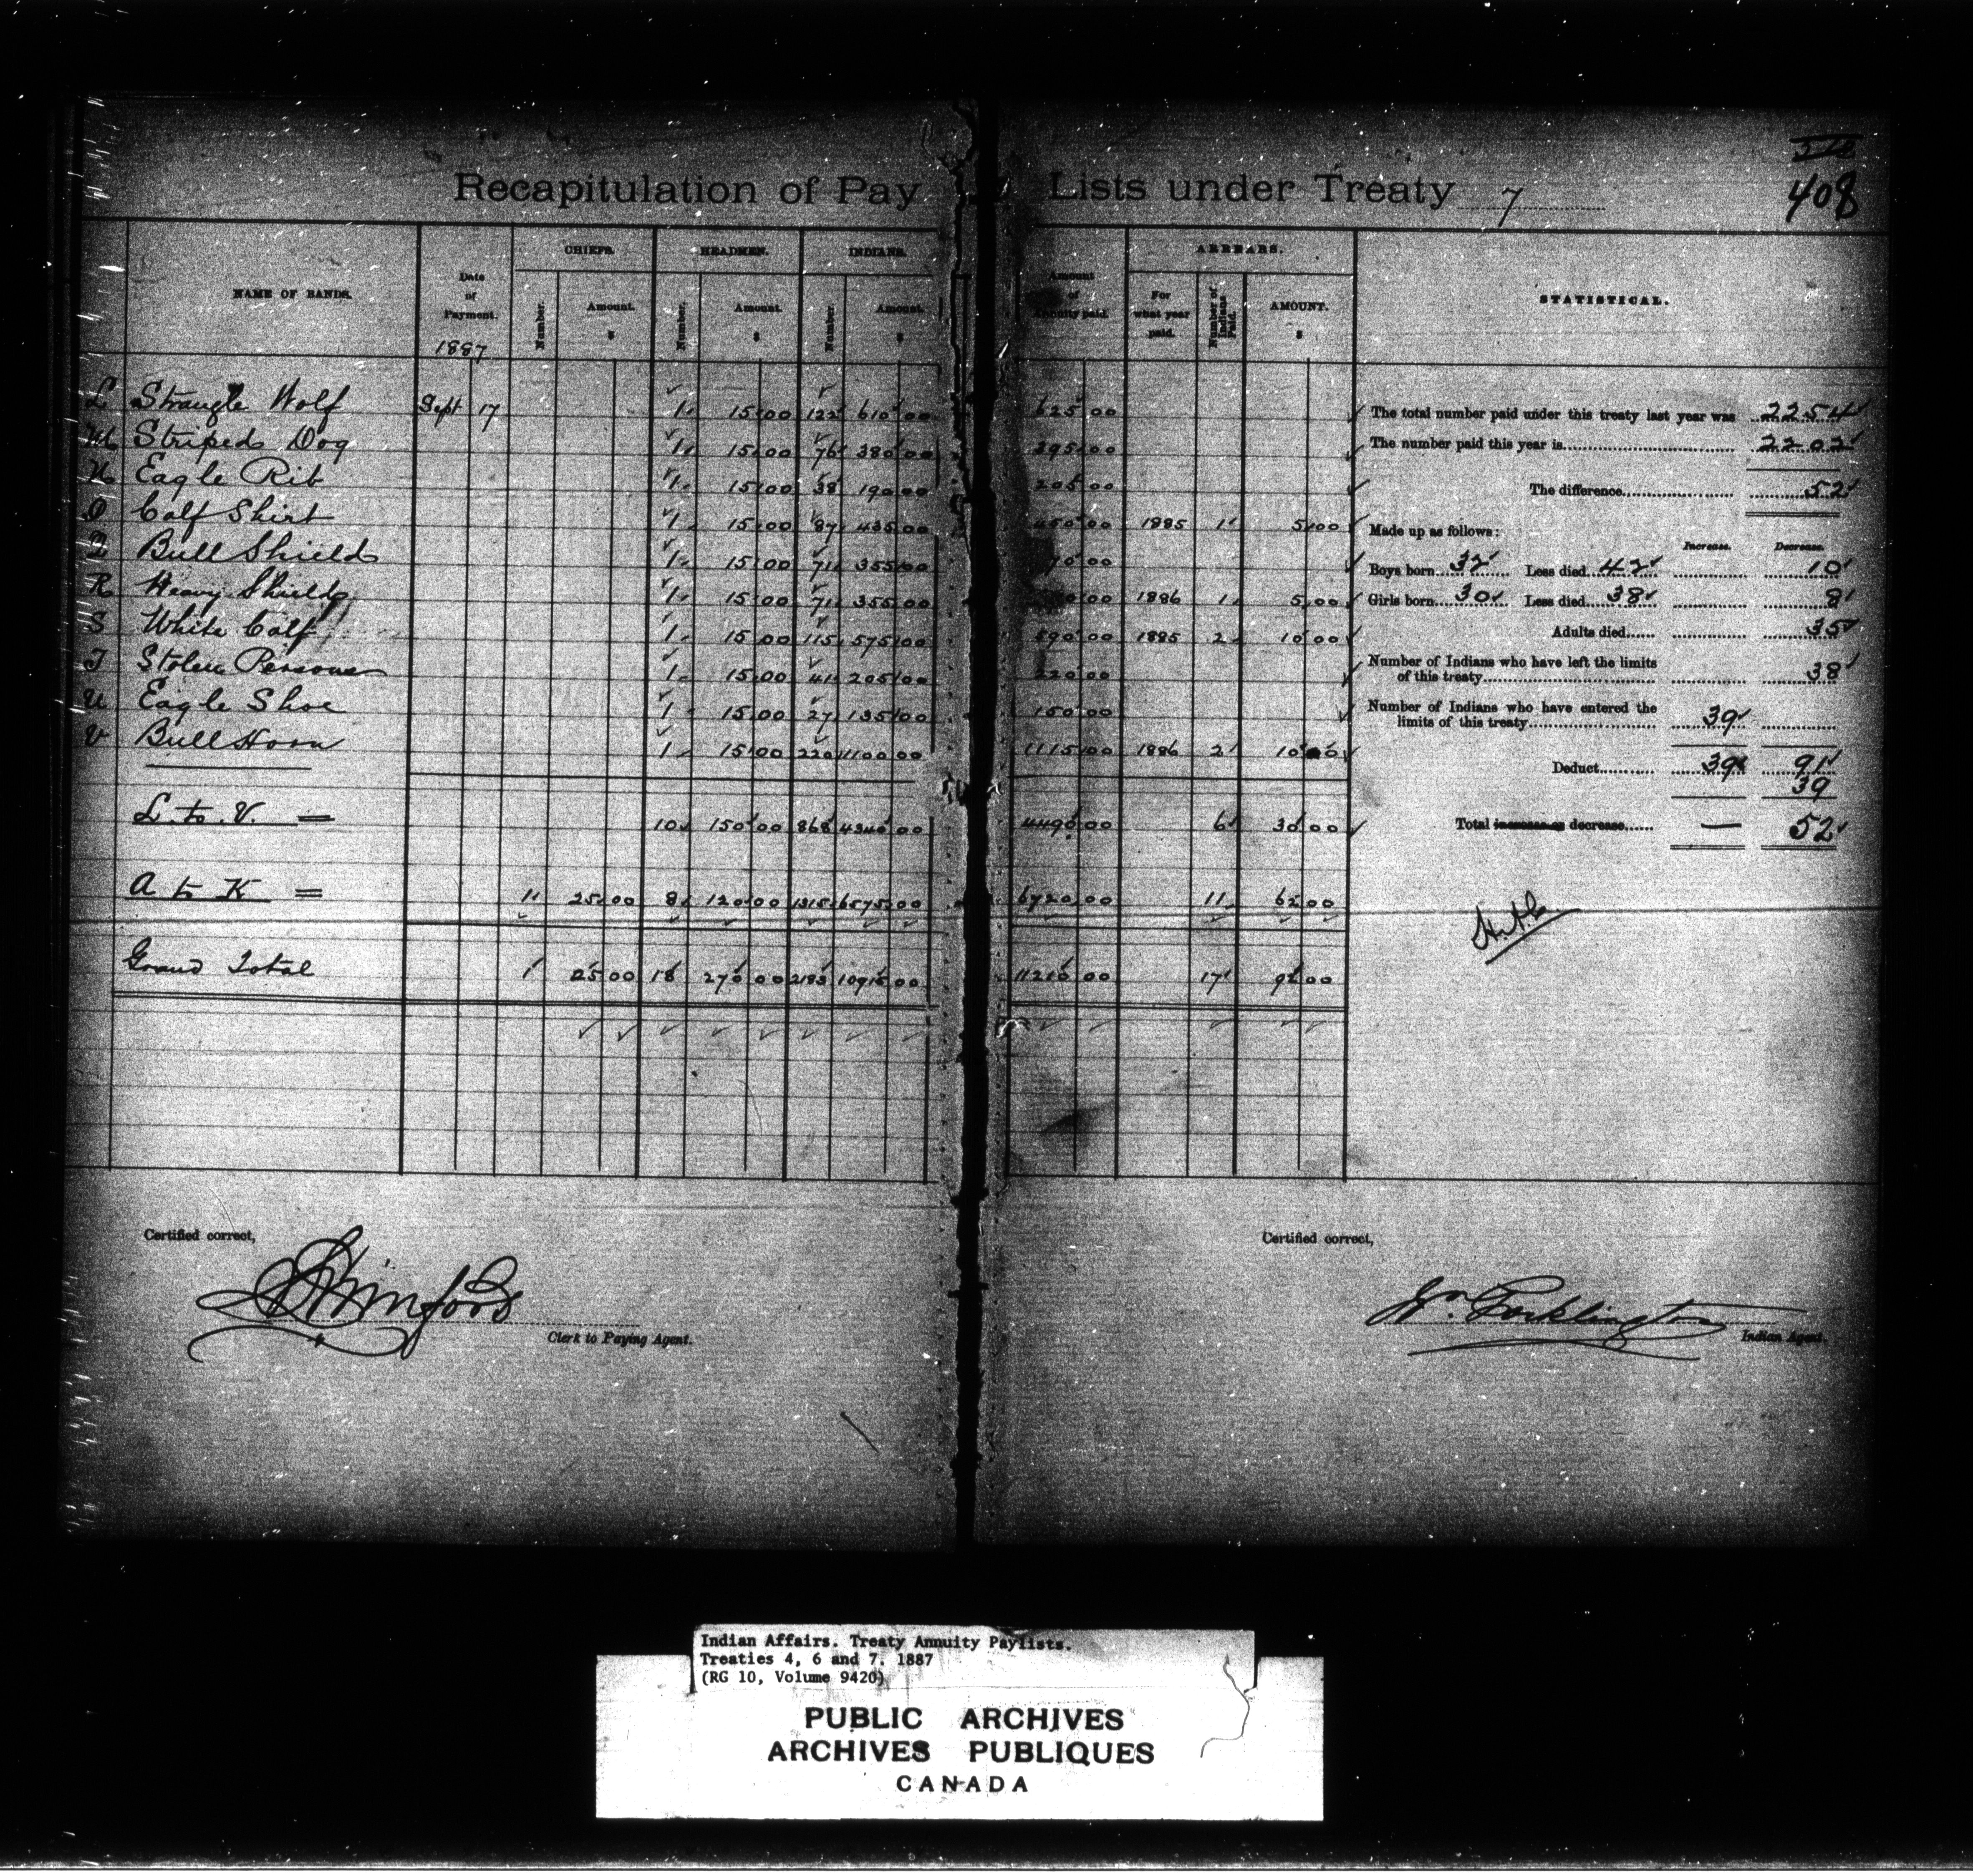 408
Recapitulation of Pay Lists under Treaty 7
NAME OF BANDS.
Date of Payment.
1887
CHIEFS.
Number.
Amount.
$
HEADMEN.
Number.
Amount.
$
INDIANS.
Number
Amount.
$
Amount of Annuity paid.
ARREARS.
For what year paid.
Number of Indians Paid.
AMOUNT.
$
STATISTICAL.
L Strangle Wolf Sept 17 1 15 00 122 610 00 625 00
M Striped Dog 1 15 00 76 380 00 395 00
N Eagle Rib 1 15 00 38 190 00 205 00
O Calf Shirt 1 15 00 87 435 00 450 00 1885 1 5 00
Q Bull Shield 1 15 00 71 355 00 70 00
R Heavy Shield 1 15 00 71 355 00 00 1886 1 5 00
S White Calf 1 15 00 115 575 00 590 00 1885 2 10 00
T Stolen Person 1 15 00 41 205 00 220 00
U Eagle Shoe 1 15 00 27 135 00 150 00
V Bull Horn 1 15 00 220 1100 00 1115 00 1886 2 10 00
L to V. = 10 150 00 868 4340 00 4490 00 6 30 00
A to K = 1 25 00 8 120 00 1315 6575 00 6720 00 11 62 00
Grand Total 1 25 00 18 270 00 2183 10915 00 11210 00 17 92 00
The total number paid under this treaty last year was 2254
The number paid this year is 2202
The difference 52
Made up as follows:
Increase. Decrease.
Boys born 32 Less died 42 10
Girls born 30 Less died 38 8
Adults died 35
Number of Indians who have left the limits
of this treaty 38
Number of Indians who have entered the
limits of this treaty 39
Deduct 39 91
39
Total increase or decrease — 52
Certified correct,
Clerk to Paying Agent.
Certified correct,
Wm. Pocklington
Indian Agent.
Indian Affairs. Treaty Annuity Paylists.
Treaties 4, 6 and 7. 1887
(RG 10, Volume 9420)
PUBLIC ARCHIVES
ARCHIVES PUBLIQUES
CANADA